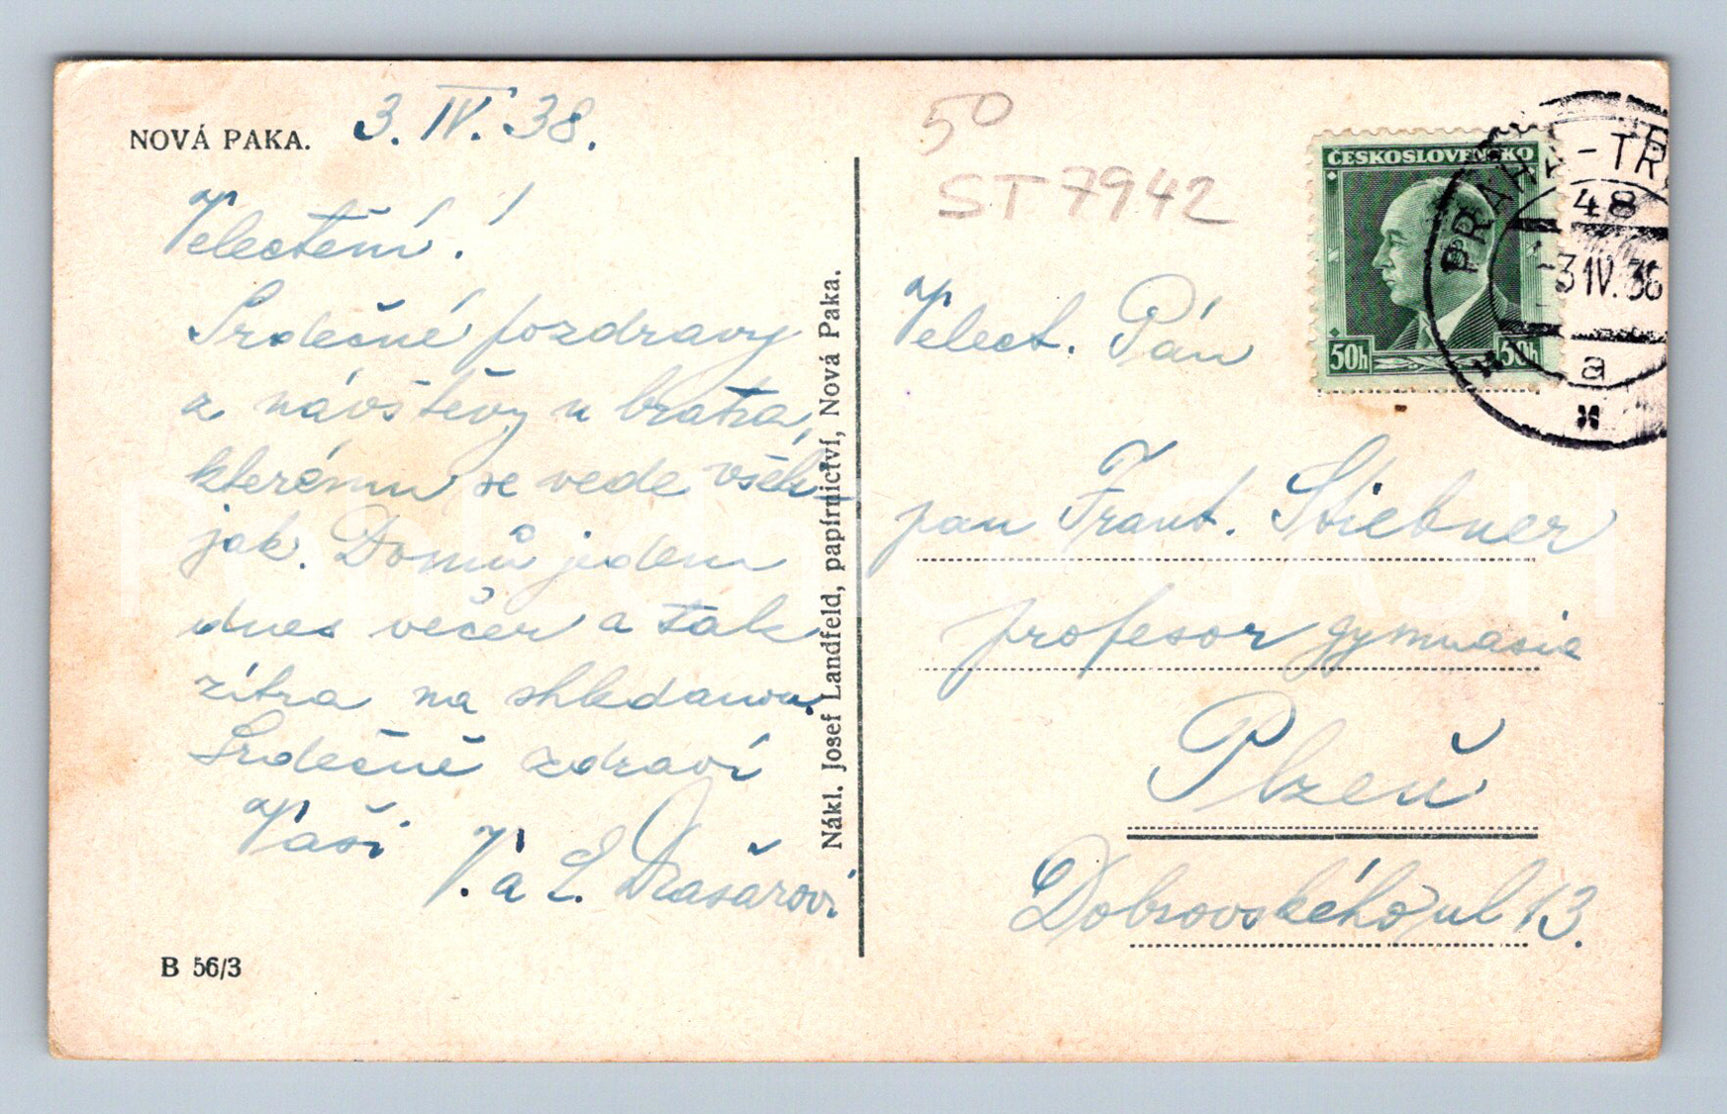 NOVÁ PAKA. 3. IV. 38.
Velectění!
Srdečné pozdravy
z návštěvy u bratra,
kterému se vede všeli-
jak. Domů jedem
dnes večer a tak
zítra na shledanou.
Srdečně zdraví
Vaši
V. a L. Drašarovi
B 56/3
Nákl. Josef Landfeld, papírnictví, Nová Paka.
50
ST 7942
ČESKOSLOVENSKO
50h 50h
PRAHA-TR
48
-3.IV.38
a
Velect. Pán
pan Frant. Stiebner
profesor gymnasia
Plzeň
Dobrovského ul 13.